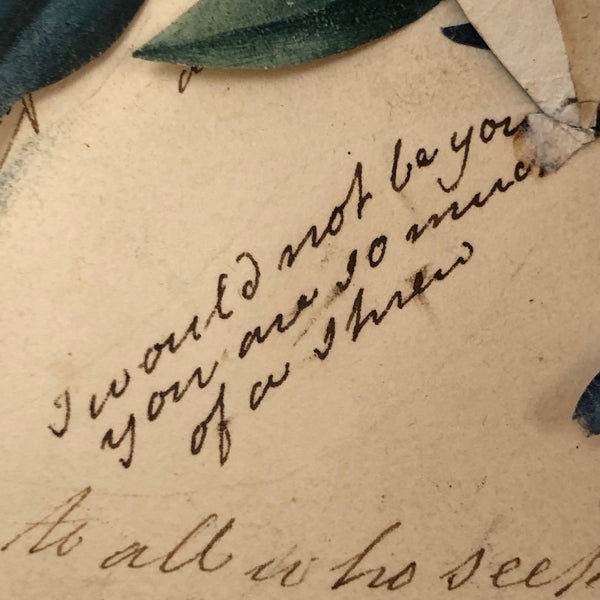 I would not be you
you are so much
of a shrew
to all who seek